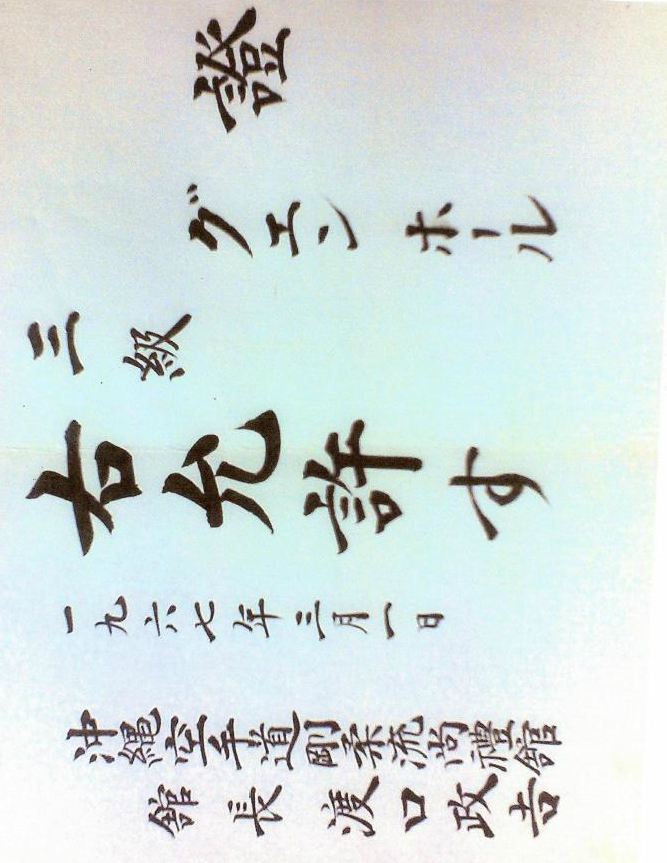 證
グエンホール
三級
右允許す
一九六七年三月一日
沖縄空手道剛柔流尚禮館
館長 渡口政吉